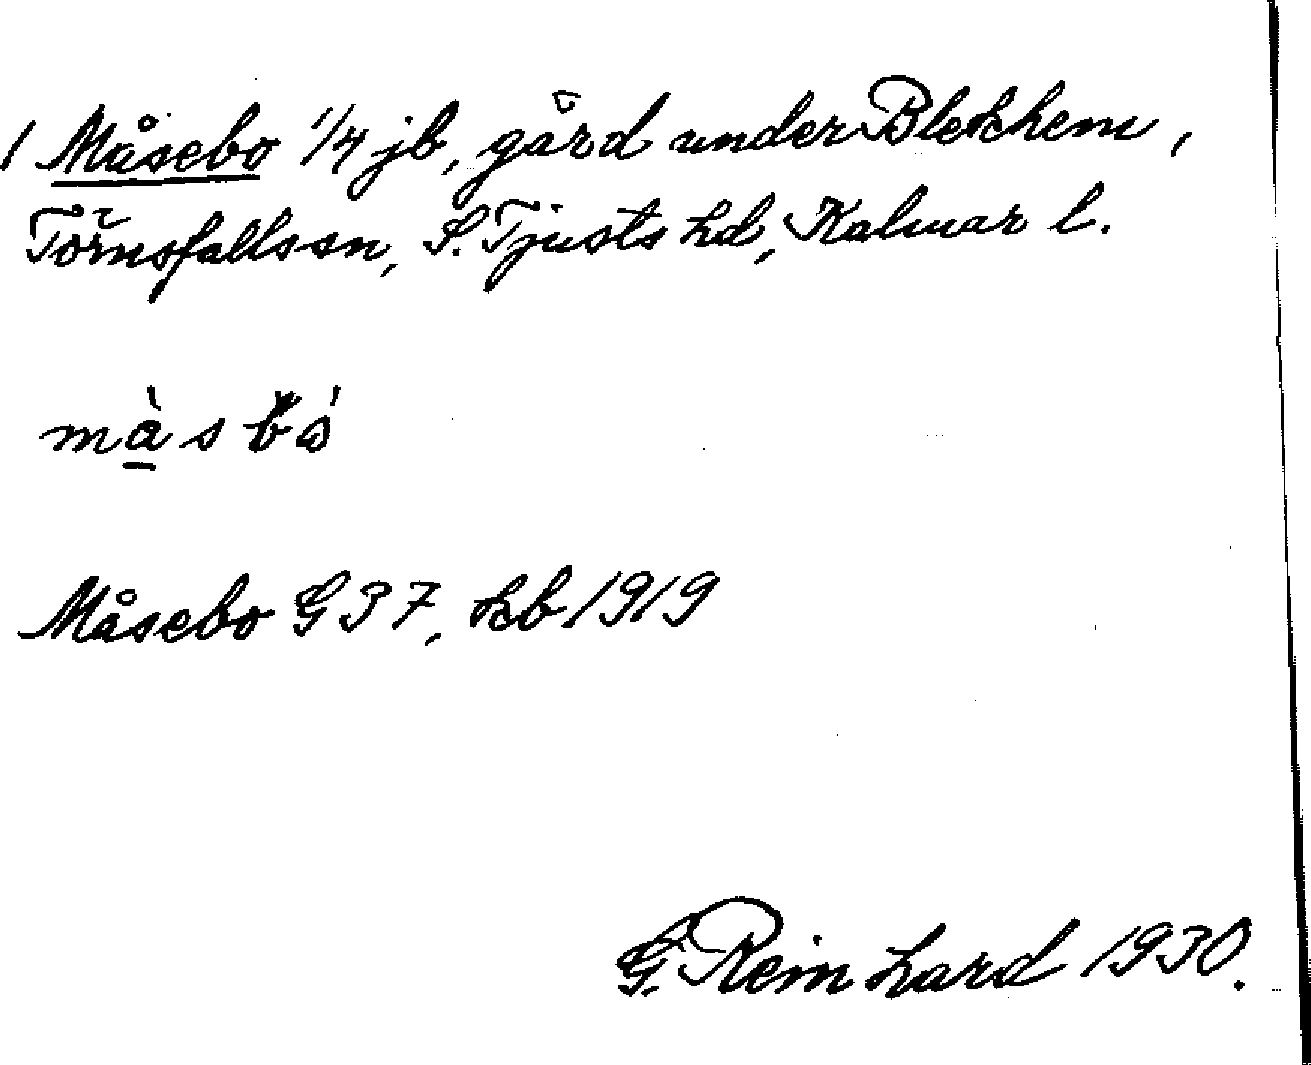 1 Måsebo 1/4 jb, gård under Blekhem,
Törnsfalls sn, S. Tjusts hd, Kalmar l.
må̀sbó
Måsebo G 37, kb 1919
G. Reinhard 1930.